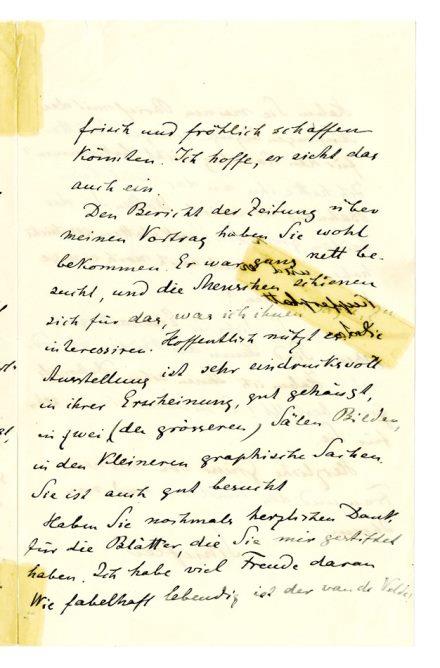 frisch und fröhlich schaffen
könnten. Ich hoffe, er sieht das
auch ein.
Den Bericht der Zeitung über
meinen Vortrag haben Sie wohl
bekommen. Er war ganz nett be-
sucht, und die Menschen schienen
sich für das, was ich ihnen
interessiren. Hoffentlich nützt es. Die
Ausstellung ist sehr eindrucksvoll
in ihrer Erscheinung, gut gehängt,
in zwei (den grösseren) Sälen Bilder,
in den kleineren graphische Sachen.
Sie ist auch gut besucht
Haben Sie nochmals herzlichen Dank
für die Blätter, die Sie mir gestiftet
haben. Ich habe viel Freude daran
Wie fabelhaft lebendig ist der van de Velde